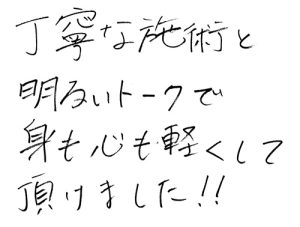 丁寧な施術と
明るいトークで
身も心も軽くして
頂けました!!